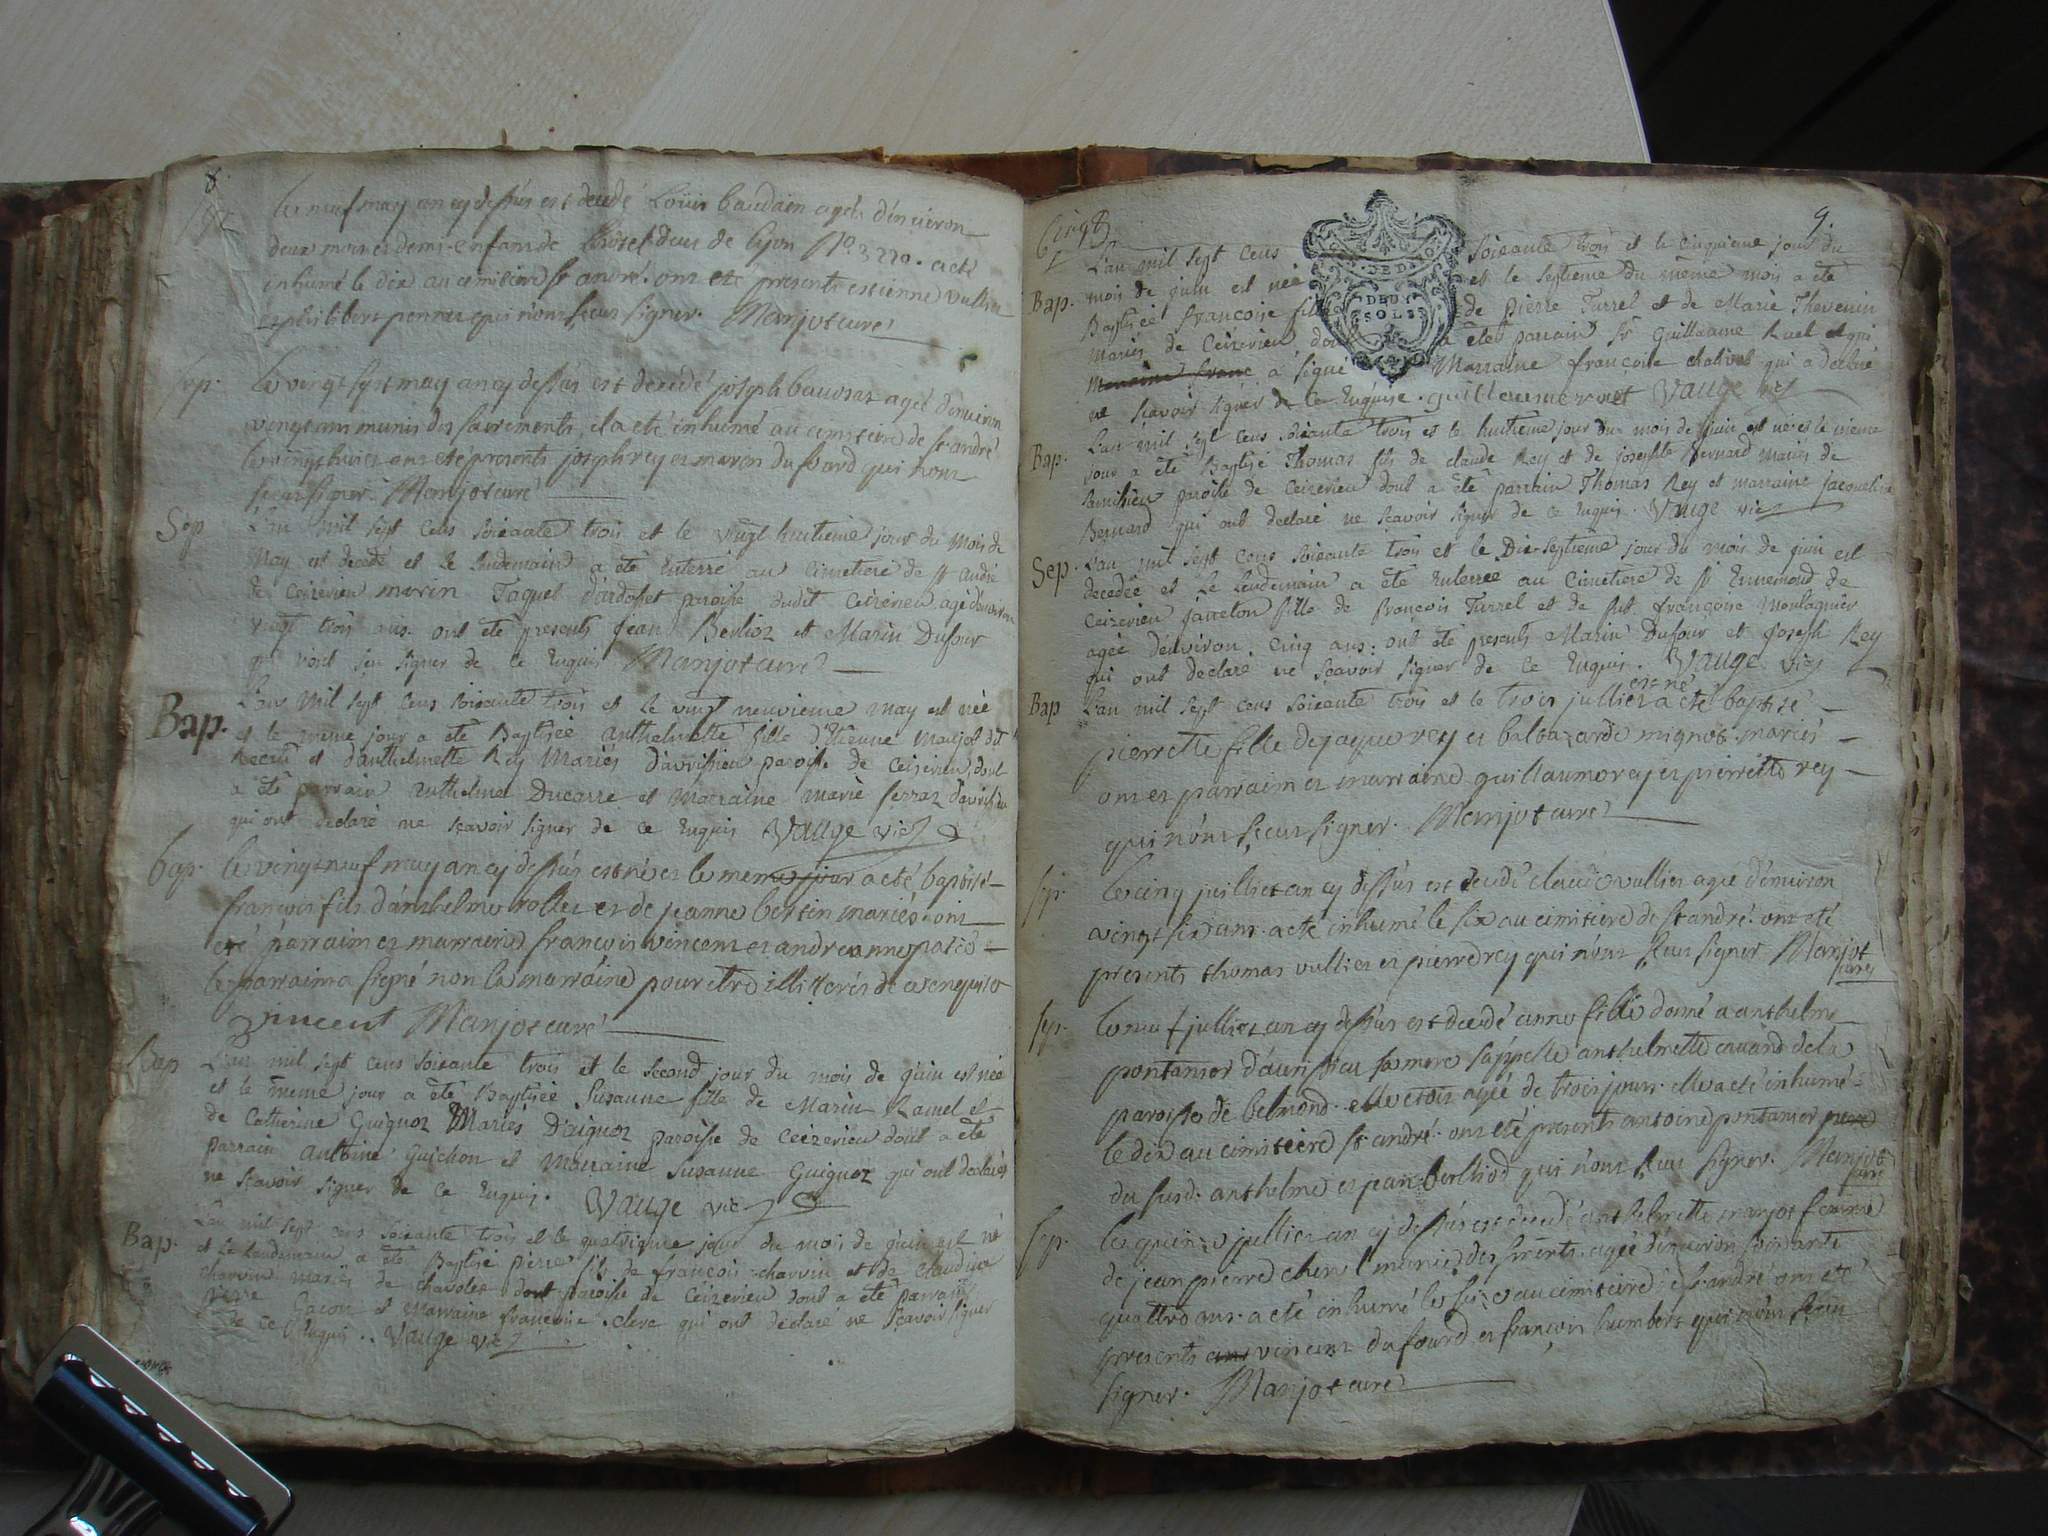 8.
le neuf may an cy dessus est decedé Louis baudain agé d'énviron
deux mois et demi enfant de l'hotel dieu de lyon No. 3220. a été
inhumé le dix au cimitiere st andré. ont eté presents estienne vullier
et philibert pernas qui n'ont sceu signer. Manjot curé
sep. le vingt sept may an cy dessus est decedé joseph bauvras agé d'énviron
vingt ans munis des sacrements, il a eté inhumé au cimitiere de st andré
le vingt huit ont eté presents joseph rey et maron dufourd qui n'ont
sceu signer. Manjot curé
Sep L'an mil sept cens soixante trois et le vingt huitieme jour du mois de
May est decedé et le lendemain a été Enterré au Cimetiere de st André
de Ceizerieu marin Jaquet d'ardosset paroisse dudit Ceizerieu agé d'environ
vingt trois ans. ont été presents Jean Berlioz et Marin Dufour
qui n'ont sçu signer de ce Enquis Manjot curé
Bap. L'an mil sept cens soixante trois et le vingt neuvieme may est née
et le meme jour a été Baptisée Anthelmette fille d'Etienne Manjot dit
et d'anthelmette Rey Mariés d'avrissieu paroisse de Ceizerieu, dont
a été parrain Anthelme Ducarre et Marraine marie ferraz d'avrissieu
qui ont declaré ne sçavoir signer de ce Enquis Vauge vic.
bap. le vingt neuf may an cy dessus est né et le meme jour a eté baptisé
francois fils d'anthelme rollet et de jeanne bertin mariés. ont
eté parrain et marraine francois vincent et andreanne patié
le parrain a signé non la marraine pour etre illitterés de ce enquise
Vincent Manjot curé
Bap L'an mil sept cens soixante trois et le second jour du mois de juin est née
et le meme jour a été Baptisée Susanne fille de Marin Ramel et
de Catherine Guignoz Mariés D'aignoz paroisse de Ceizerieu dont a été
parrain Antoine Guichon et Marraine Susanne Guignoz qui ont declaré
ne sçavoir signer de ce Enquis. Vauge vic
Bap. L'an mil sept cens soixante trois et le quatrieme jour du mois de juin est né
et le lendemain a été Baptisé pierre fils de françois charvin et de Claudine
charvin Mariés de chavoley dont paroisse de Ceizerieu dont a été parrain
pierre Gacon et Marraine françoise clerc qui ont declaré ne sçavoir signer
de ce Enquis.. Vauge vic
9.
L'an mil sept cens soixante trois et le cinquieme jour du
Bap. mois de juin est née et le septieme du même mois a été
Baptisée françoise fille de pierre Turrel et de Marie Thevenin
Mariés de Ceizerieu dont a été parrain sr Guillaume Ruet qui
Marraine franc a signé Marraine françoise chalivet qui a declaré
ne sçavoir signer de ce Enquise. guilleaume ruet Vauge vic
Bap. L'an mil sept cens soixante trois et le huitieme jour du mois de juin est né et le même
jour a été Baptisé Thomas fils de claude Rey et de josephte Bernard Mariés de
paroisse de Ceizerieu dont a été parrain Thomas Rey et marraine Jacqueline
Bernard qui ont declaré ne sçavoir signer de ce Enquis. Vauge vic
Sep. L'an mil sept cens soixante trois et le Dix-septieme jour du mois de juin est
decedée et Le Lendemain a été Enterrée au Cimetiere de st Ennemond de
Ceizerieu fille de François Turrel et de françoise Montagnier
agée d'environ cinq ans. ont été presents Marin Dufour et Joseph Rey
qui ont declaré ne sçavoir signer de ce Enquis. Vauge vic
est né
Bap L'an mil sept cens soixante trois et le trois julliet a eté baptisé
pierrette fille de jaque rey et balthazarde mignot mariés
ont et parrain et marraine guillaume rey et pierrette rey
qui n'ont sceu signer. Manjot curé
sep. le cinq juilliet an cy dessus est decedé claude vullier agé d'énviron
vingt six ans. a eté inhumé le six au cimitiere de st andré. ont eté
presents thomas vullier et pierre rey qui n'ont sceu signer Manjot
curé
sep. le neuf julliet an cy dessus est decedé anne fille donné a anthelme
pontanier d'avrissieu sa mere s'appelle anthelmette de la
paroisse de belmond. elle etoit agée de trois jours. elle a eté inhumé
le dix au cimitiere st andré. ont eté presents antoine pontanier pere
du susd. anthelme et jean berlliod qui n'ont sceu signer. Manjot
curé
sep. le quinze julliet an cy dessus est decedé anthelmette manjot femme
de jean pierre munie des sacrements. agée d'énviron soixante
quattre ans. a eté inhumé le seize au cimitiere de st andré ont eté
presents vincent dufourd et françois humbert qui n'ont sceu
signer. Manjot curé
DEUX
SOLS